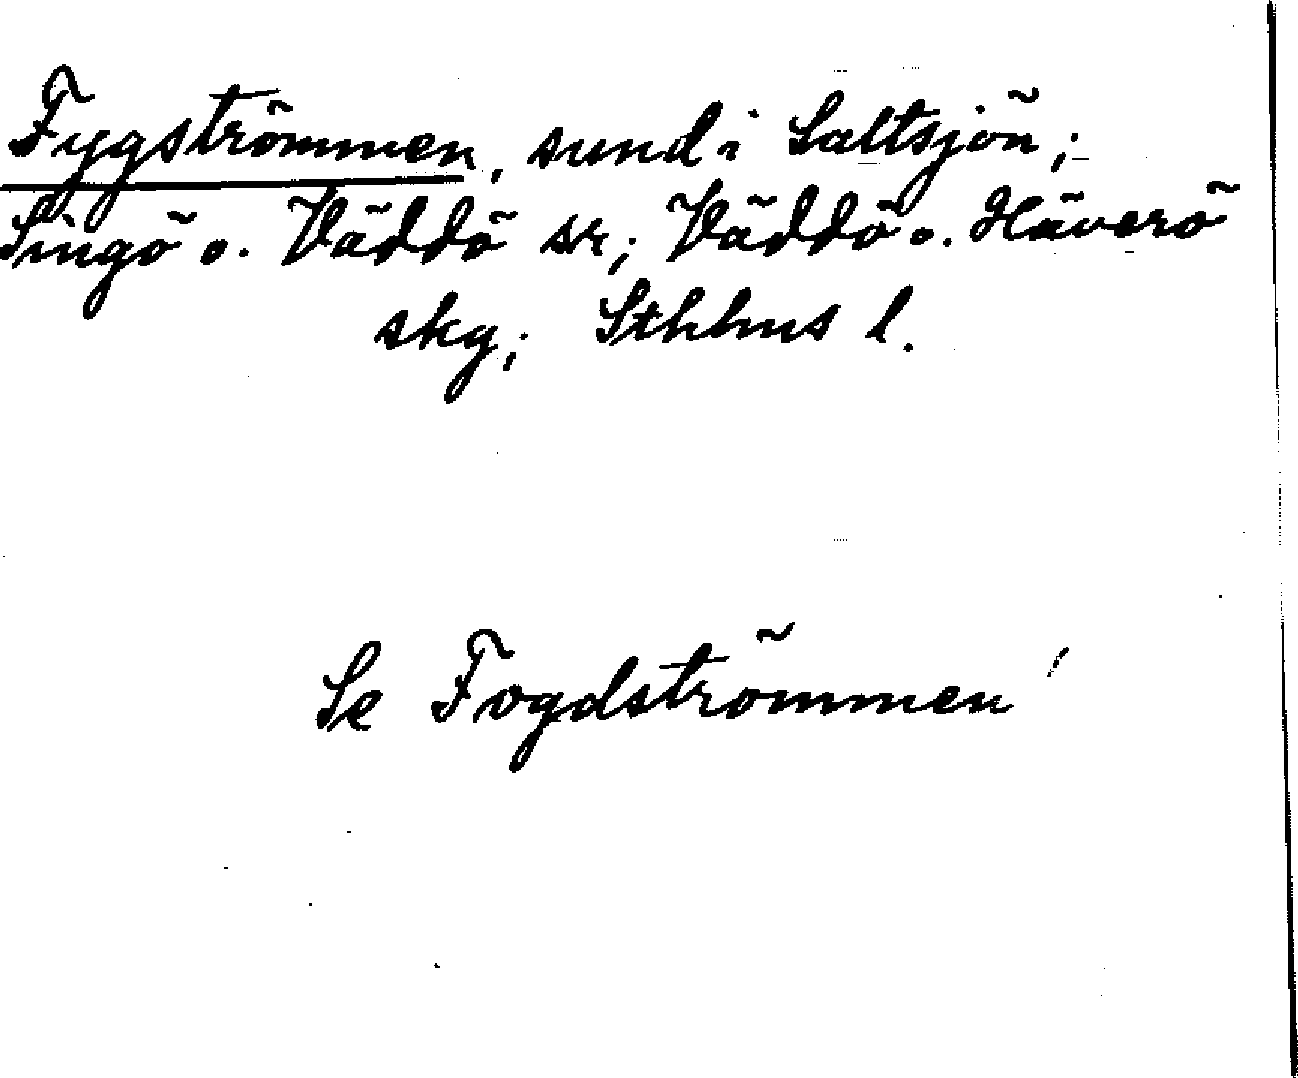 Fygströmmen, sund i Saltsjön;
Singö o. Väddö sr; Väddö o. Häverö
skg; Sthlms l.
Se Fogdströmmen